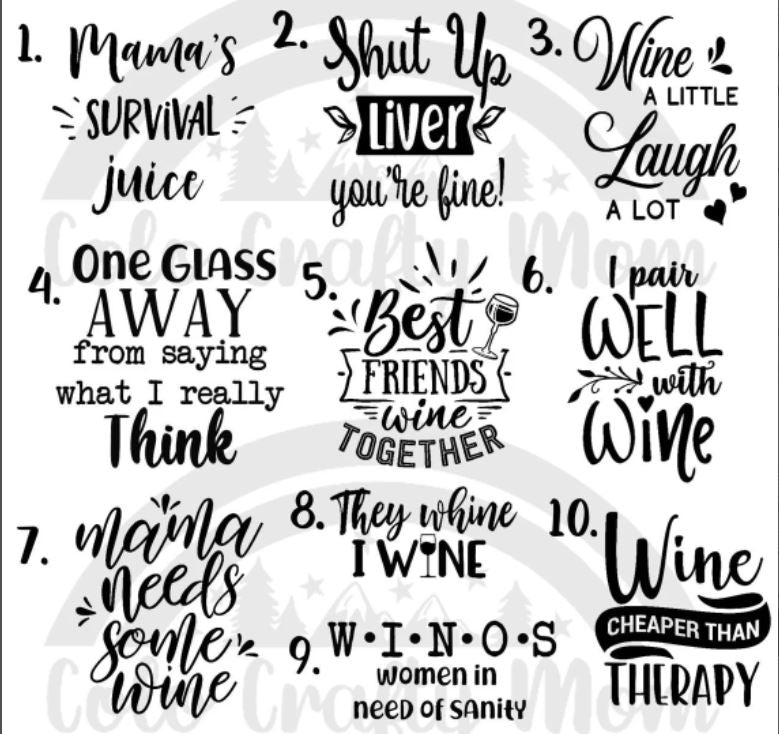 1. Mama's
SURVIVAL
juice
2. Shut Up
Liver
you're fine!
3. Wine
A LITTLE
Laugh
A LOT
4. One GLASS
AWAY
from saying
what I really
Think
5. Best
FRIENDS
wine
TOGETHER
6. I pair
WELL
with
Wine
7. mama
needs
some
wine
8. They whine
I WINE
9. W•I•N•O•S
women in
neeD of sAnity
10. Wine
CHEAPER THAN
THERAPY
Colo Crafty Mom
Colo Crafty Mom